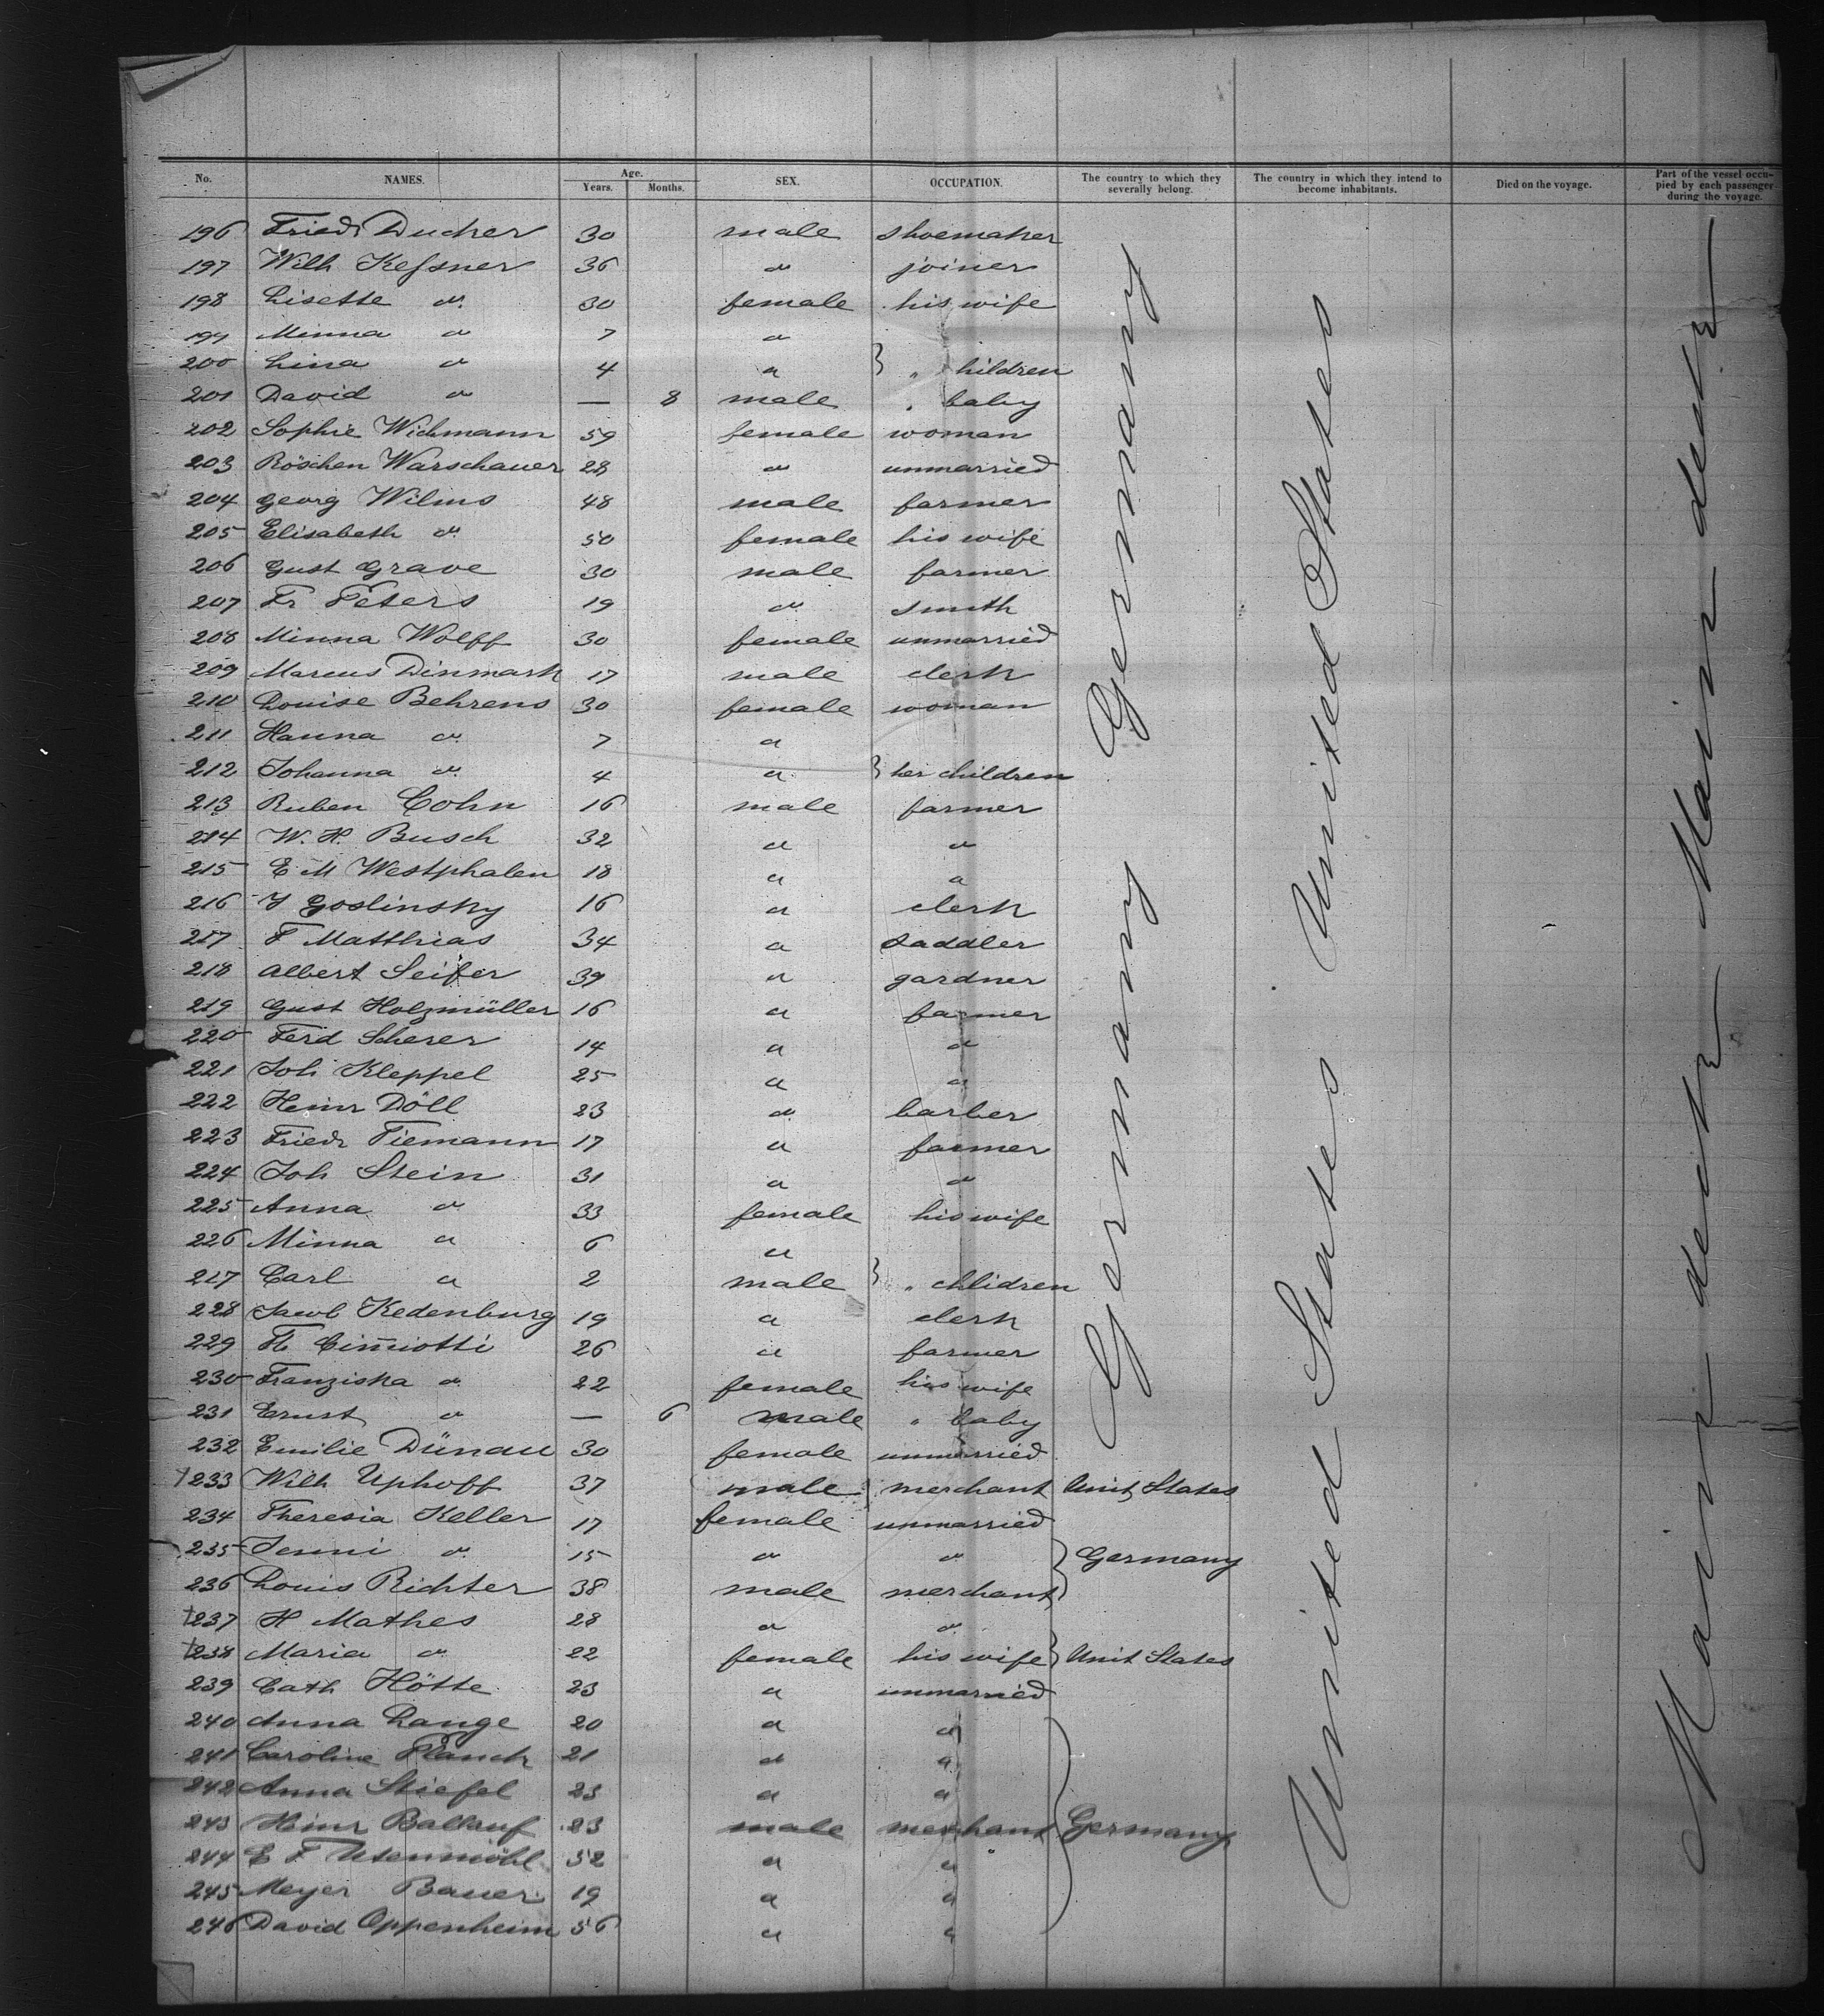 No. NAMES. Age. Years. Months. SEX. OCCUPATION. The country to which they severally belong. The country in which they intend to become inhabitants. Died on the voyage. Part of the vessel occupied by each passenger during the voyage.
196 Friedr Ducker 30 male shoemaker
197 Wilh Keſsner 36 " joiner
198 Lisette " 30 female his wife
199 Minna " 7 "
200 Lina " 4 " } " hildren
201 David " — 8 male " baby
202 Sophie Wichmann 59 female woman
203 Röschen Warschauer 28 " unmarried
204 Georg Wilms 48 male farmer
205 Elisabeth " 50 female his wife
206 Gust Grave 30 male farmer
207 Fr Peters 19 " smith
208 Minna Wolff 30 female unmarried
209 Marcus Dinmark 17 male clerk
210 Louise Behrens 30 female woman
211 Hanna " 7 "
212 Johanna " 4 " } her children
213 Ruben Cohn 16 male farmer
214 W. H. Busch 32 " "
215 E M Westphalen 18 " "
216 J Goslinsky 16 " clerk
217 F Matthias 34 " saddler
218 Albert Seifer 39 " gardner
219 Gust Holzmüller 16 " farmer
220 Ferd Scherer 14 " "
221 Joh Kleppel 25 " "
222 Heinr Döll 23 " barber
223 Friedr Tiemann 17 " farmer
224 Joh Stein 31 " "
225 Anna " 33 female his wife
226 Minna " 6 "
217 Carl " 2 male } " chlidren
228 Jacob Kedenburg 19 " clerk
229 H Cim̄iotti 26 " farmer
230 Franziska " 22 female his wife
231 Ernst " — 6 male " baby
232 Emilie Dünau 30 female unmarried
233 Wilh Uphoff 37 male merchant Unit States
234 Theresia Keller 17 female unmarried
235 Jenni " 15 " " } Germany
236 Louis Richter 38 male merchant
237 H Mathes 28 " "
238 Maria " 22 female his wife } Unit States
239 Cath Hötte 23 " unmarried
240 Anna Lange 20 " "
241 Caroline Planck 21 " "
242 Anna Stiefel 23 " "
243 Heinr Ballauf 23 male merchant } Germany
244 E F 52 " "
245 Meyer Bauer 19 " "
246 David Oppenheim 56 " "
Germany Germany
United States United States
Main deck Main deck